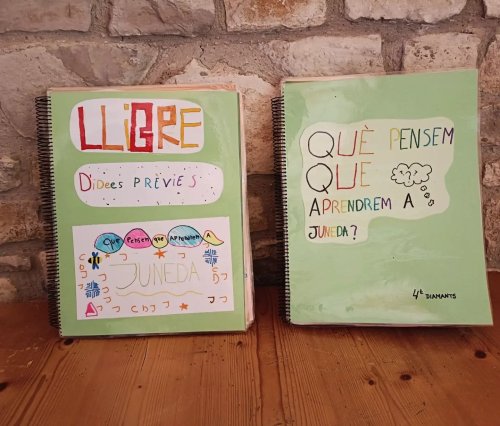 LLIBRE
D'IDEES PRÈVIES
Que Pensem que Aprendrem A
JUNEDA
QUÈ PENSEM
QUE
APRENDREM A
JUNEDA?
4t DIAMANTS